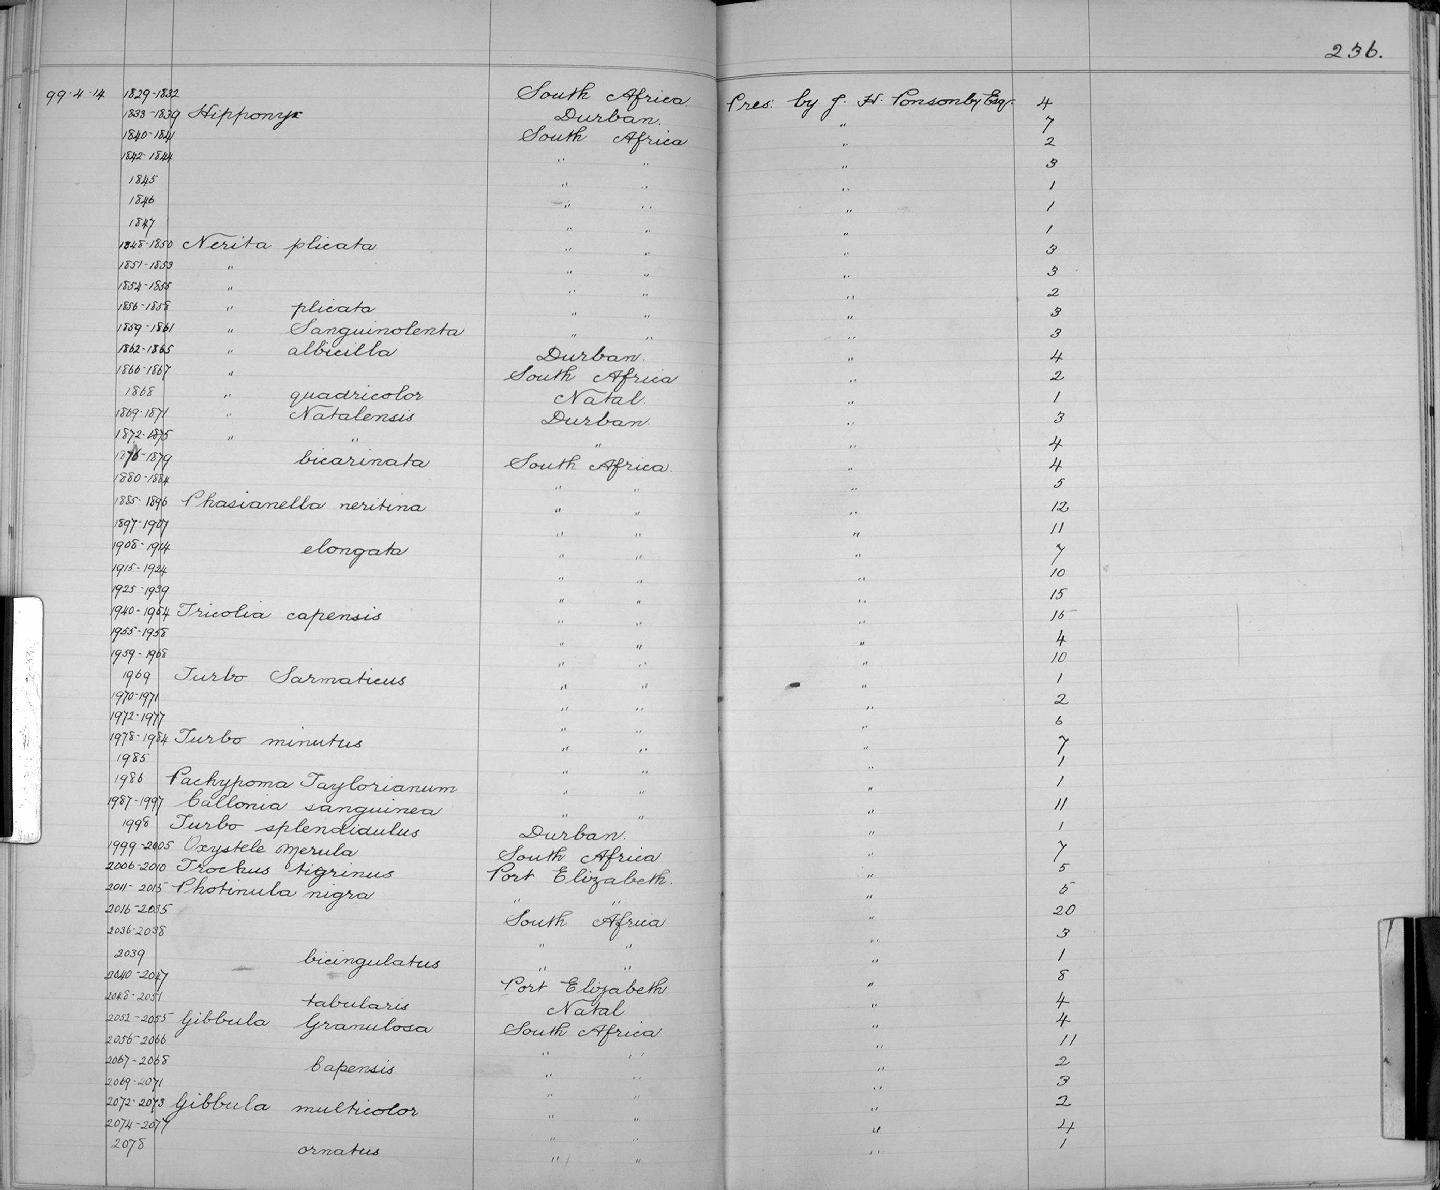 236.
99.4.14 1829-1832 South Africa Pres. by J. H. Ponsonby Esq. 4
1833-1839 Hipponyx Durban. " 7
1840-1841 South Africa " 2
1842-1844 " " " 3
1845 " " " 1
1846 " " " 1
1847 " " " 1
1848-1850 Nerita plicata " " " 3
1851-1853 " " " " 3
1854-1855 " " " " 2
1856-1858 " plicata " " " 3
1859-1861 " Sanguinolenta " " " 3
1862-1865 " albicilla Durban. " 4
1866-1867 " South Africa " 2
1868 " quadricolor Natal. " 1
1869-1871 " Natalensis Durban. " 3
1872-1875 " " " " 4
1876-1879 bicarinata South Africa. " 4
1880-1884 " " " 5
1885-1896 Phasianella neritina " " " 12
1897-1907 " " " 11
1908-1914 elongata " " " 7
1915-1924 " " " 10
1925-1939 " " " 15
1940-1954 Tricolia capensis " " " 15
1955-1958 " " " 4
1959-1968 " " " 10
1969 Turbo Sarmaticus " " " 1
1970-1971 " " " 2
1972-1977 " " " 6
1978-1984 Turbo minutus " " " 7
1985 " " " 1
1986 Pachypoma Taylorianum " " " 1
1987-1997 Collonia sanguinea " " " 11
1998 Turbo splendidulus Durban. " 1
1999-2005 Oxystele Merula South Africa " 7
2006-2010 Trochus tigrinus Port Elizabeth. " 5
2011-2015 Photinula nigra " " " 5
2016-2035 South Africa " 20
2036-2038 " " " 3
2039 bicingulatus " " " 1
2040-2047 Port Elizabeth " 8
2048-2051 tabularis Natal " 4
2052-2055 Gibbula Granulosa South Africa " 4
2056-2066 " " " 11
2067-2068 Capensis " " " 2
2069-2071 " " " 3
2072-2073 Gibbula multicolor " " " 2
2074-2077 " " " 4
2078 ornatus " " " 1